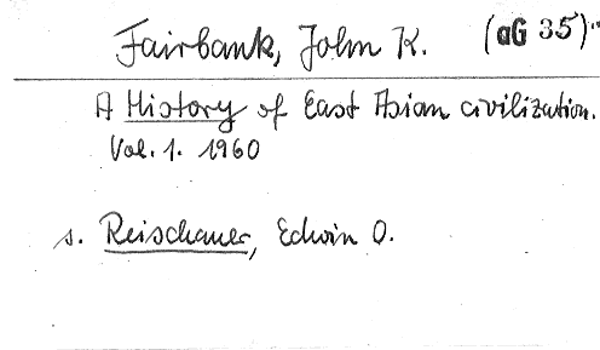 Fairbank, John K. (aG 35)
A History of East Asian civilization.
Vol. 1. 1960
s. Reischauer, Edwin O.